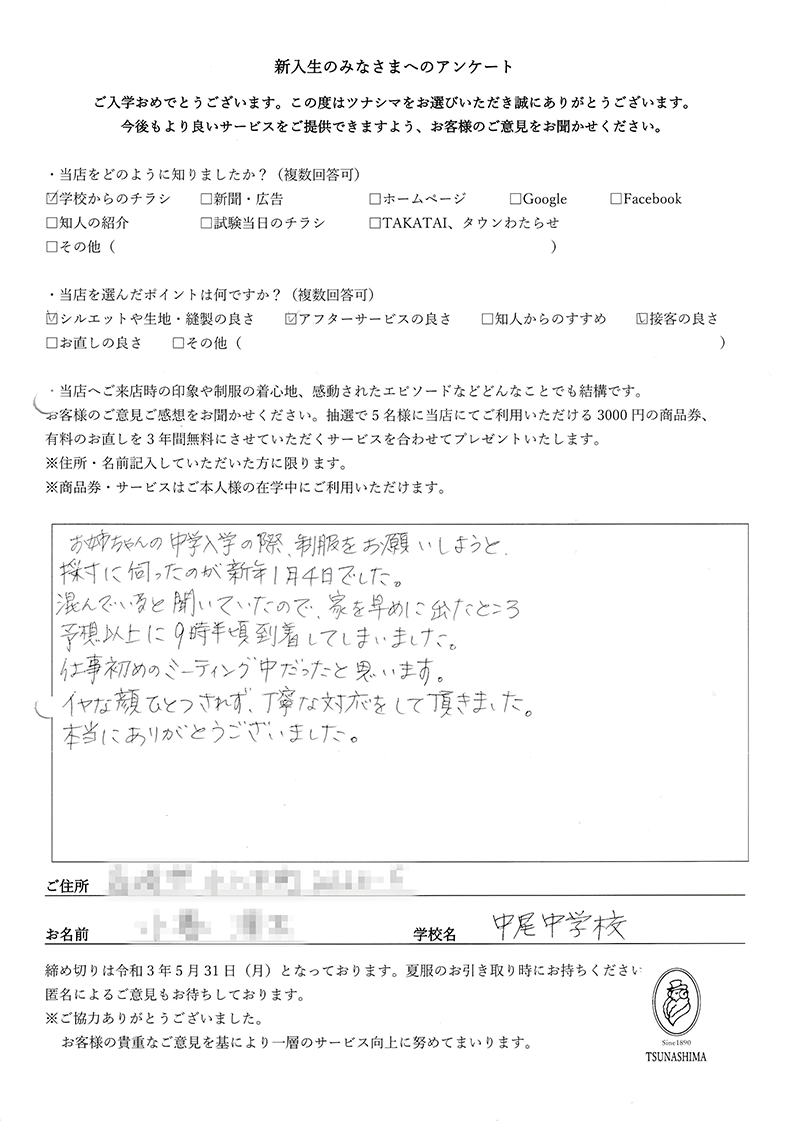 新入生のみなさまへのアンケート
ご入学おめでとうございます。この度はツナシマをお選びいただき誠にありがとうございます。
今後もより良いサービスをご提供できますよう、お客様のご意見をお聞かせください。
・当店をどのように知りましたか？（複数回答可）
☑学校からのチラシ □新聞・広告 □ホームページ □Google □Facebook
□知人の紹介 □試験当日のチラシ □TAKATAI、タウンわたらせ
□その他（ ）
・当店を選んだポイントは何ですか？（複数回答可）
☑シルエットや生地・縫製の良さ ☑アフターサービスの良さ □知人からのすすめ ☑接客の良さ
□お直しの良さ □その他（ ）
・当店へご来店時の印象や制服の着心地、感動されたエピソードなどどんなことでも結構です。
お客様のご意見ご感想をお聞かせください。抽選で5名様に当店にてご利用いただける3000円の商品券、
有料のお直しを3年間無料にさせていただくサービスを合わせてプレゼントいたします。
※住所・名前記入していただいた方に限ります。
※商品券・サービスはご本人様の在学中にご利用いただけます。
お姉ちゃんの中学入学の際、制服をお願いしようと、
採寸に伺ったのが新年1月4日でした。
混んでいると聞いていたので、家を早めに出たところ
予想以上に9時半頃到着してしまいました。
仕事初めのミーティング中だったと思います。
イヤな顔ひとつされず、丁寧な対応をして頂きました。
本当にありがとうございました。
ご住所
お名前 学校名 中尾中学校
締め切りは令和3年5月31日（月）となっております。夏服のお引き取り時にお持ちください
匿名によるご意見もお待ちしております。
※ご協力ありがとうございました。
お客様の貴重なご意見を基により一層のサービス向上に努めてまいります。
Sine1890
TSUNASHIMA